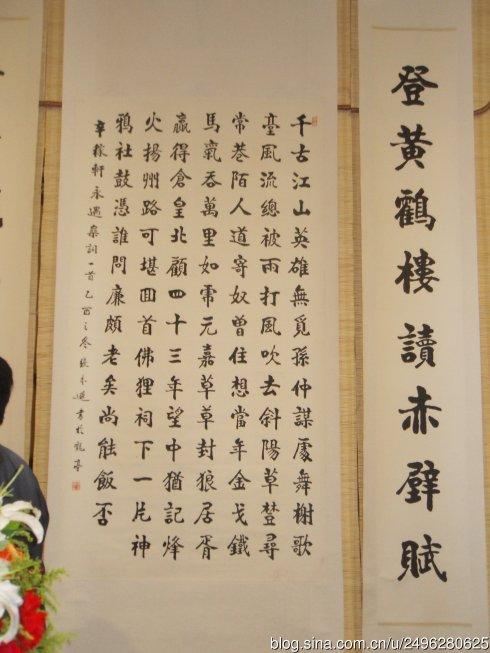 登黃鶴樓讀赤壁賦
千古江山英雄無覓孫仲謀處舞榭歌
臺風流總被雨打風吹去斜陽草樹尋
常巷陌人道寄奴曾住想當年金戈鐵
馬氣吞萬里如虎元嘉草草封狼居胥
贏得倉皇北顧四十三年望中猶記烽
火揚州路可堪回首佛狸祠下一片神
鴉社鼓憑誰問廉頗老矣尚能飯否
辛稼軒永遇樂詞一首乙酉之冬
blog.sina.com.cn/u/2496280625